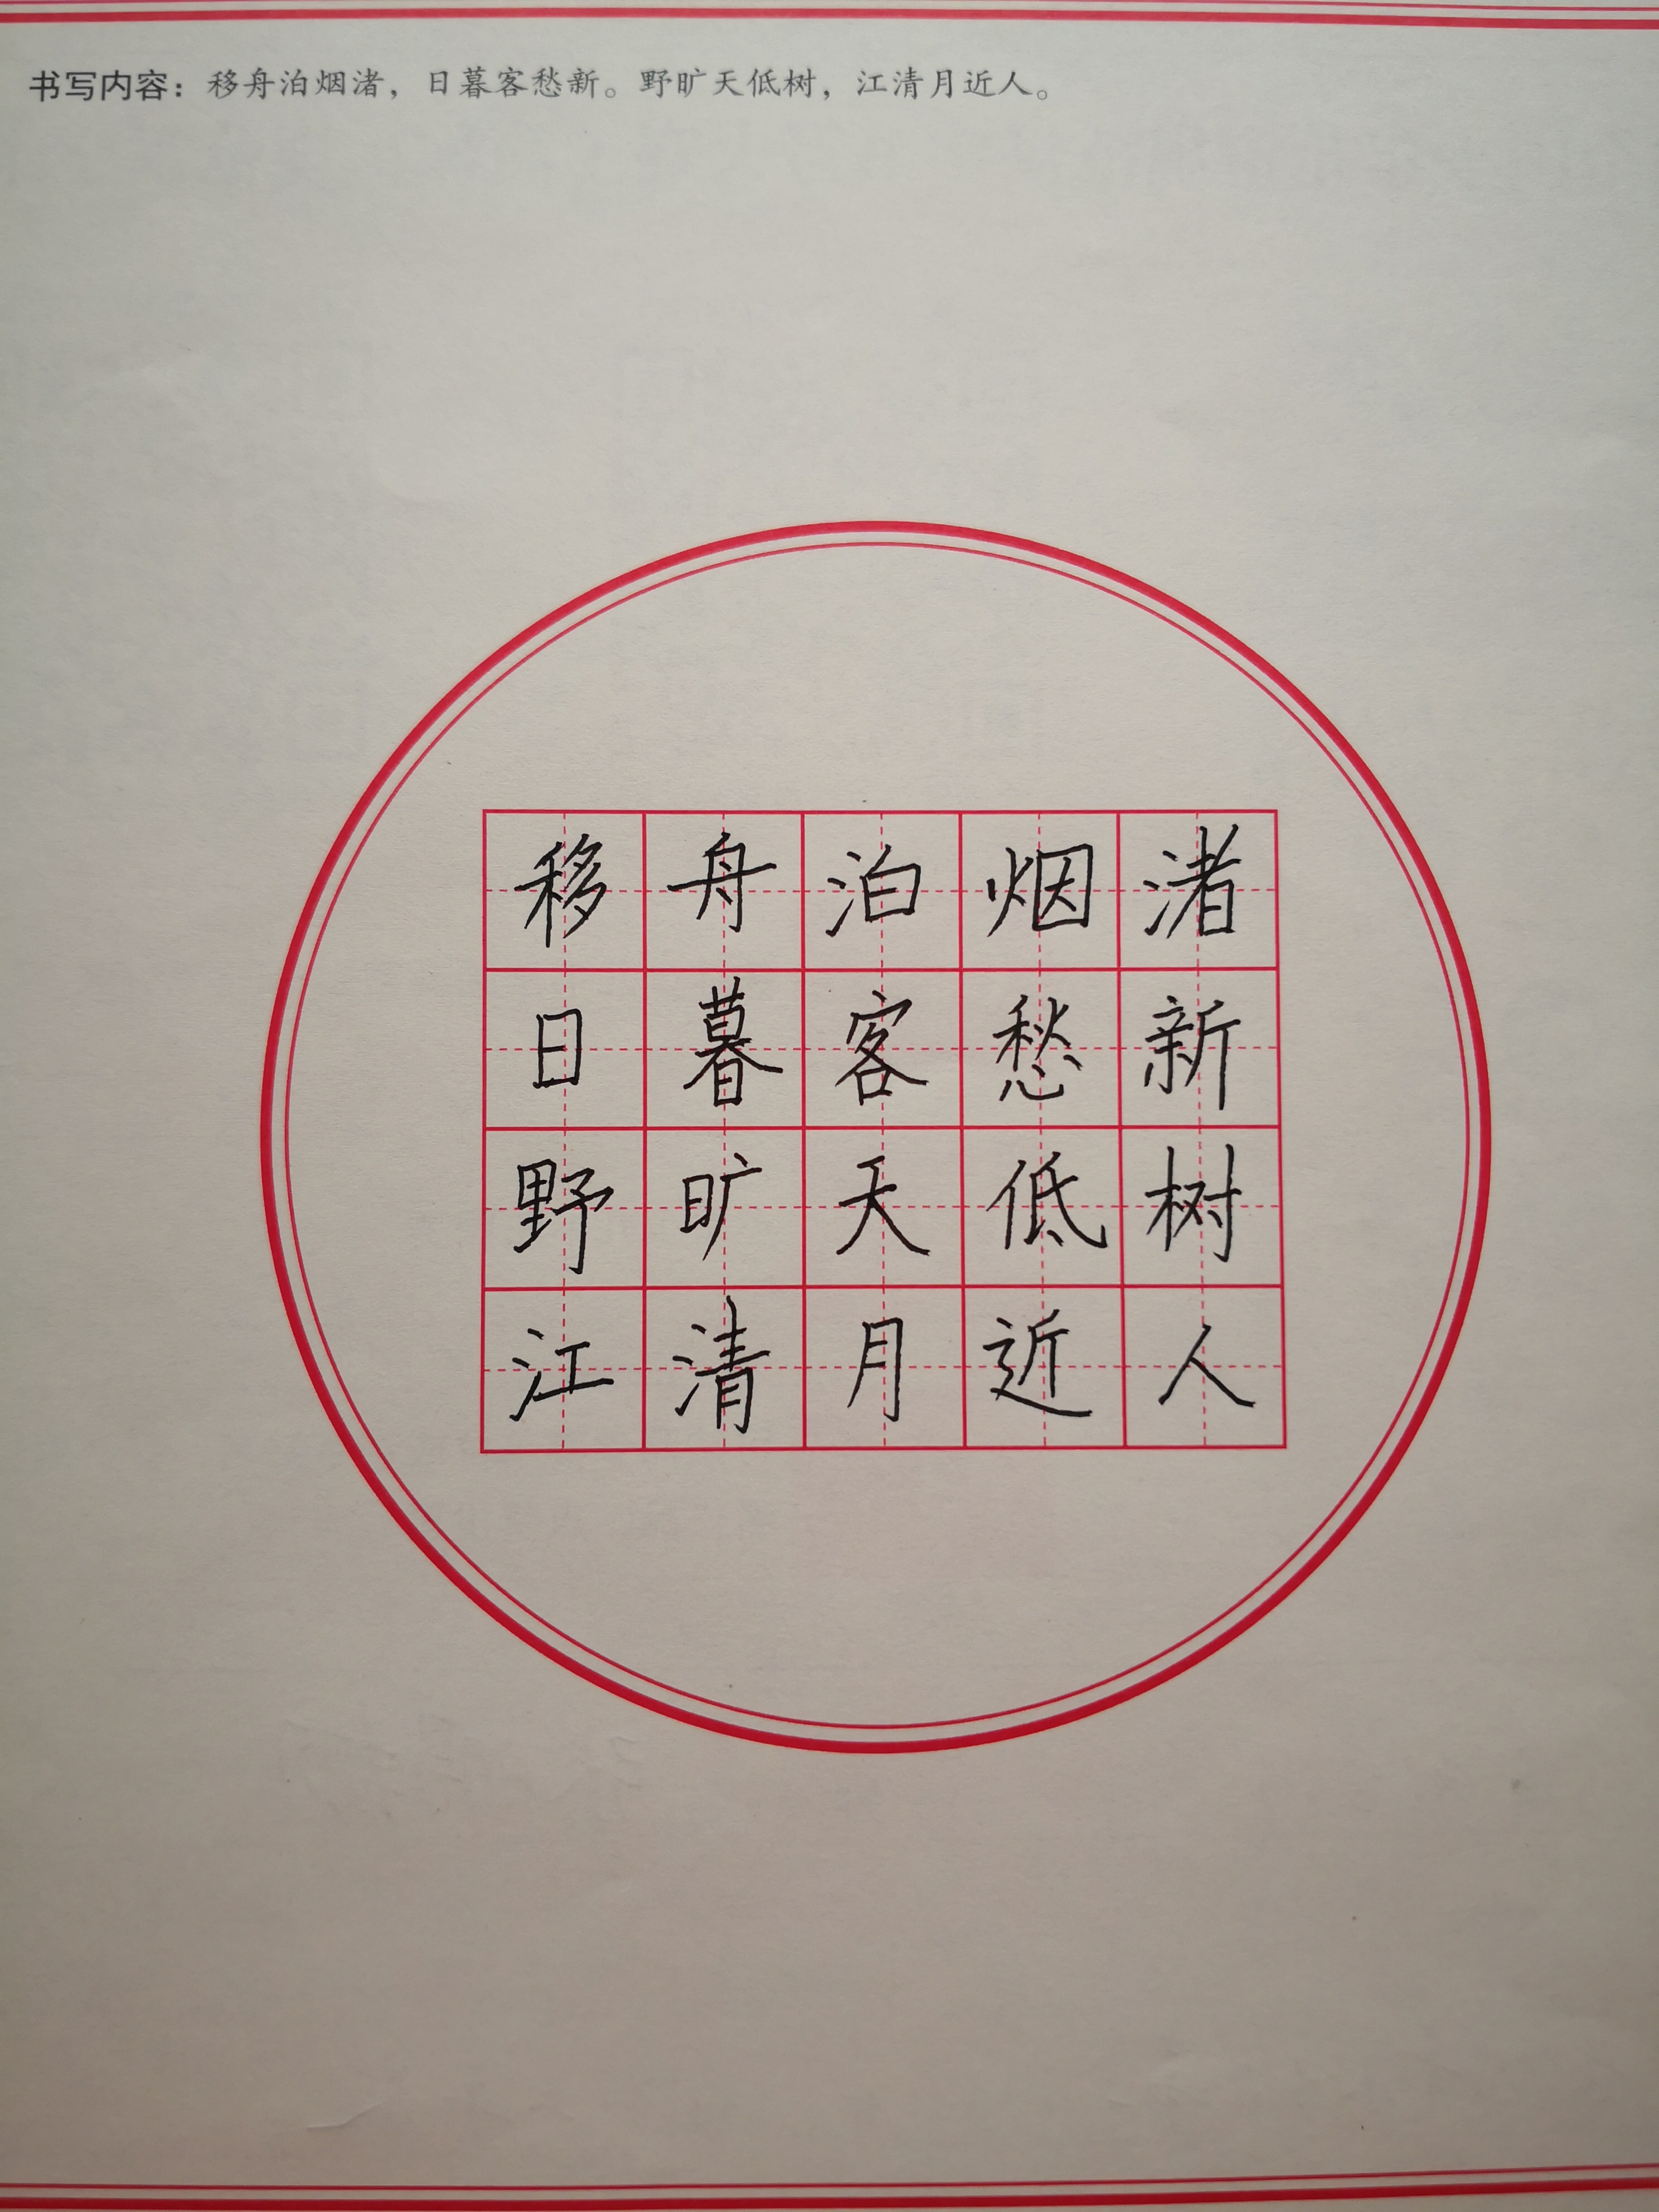 书写内容：移舟泊烟渚，日暮客愁新。野旷天低树，江清月近人。
移舟泊烟渚
日暮客愁新
野旷天低树
江清月近人